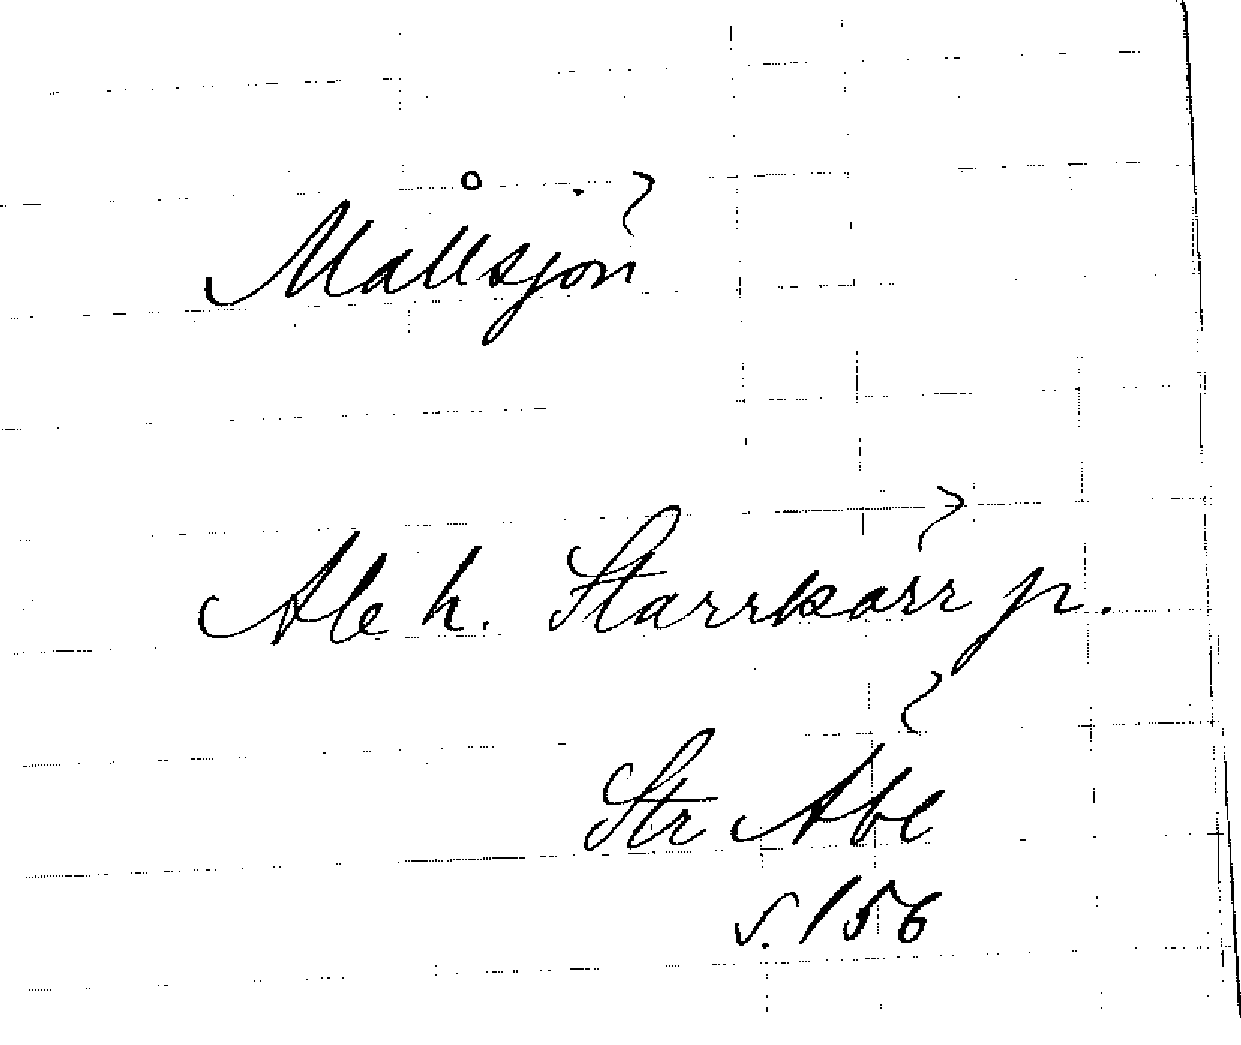 Mållsjön
Ale h. Starrkärr p.
Str
s. 156